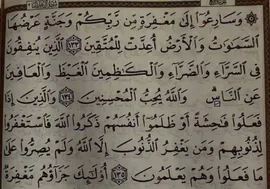 وَسَارِعُوٓا۟ إِلَىٰ مَغْفِرَةٍ مِّن رَّبِّكُمْ وَجَنَّةٍ عَرْضُهَا
ٱلسَّمَـٰوَٰتُ وَٱلْأَرْضُ أُعِدَّتْ لِلْمُتَّقِينَ ١٣٣ ٱلَّذِينَ يُنفِقُونَ
فِى ٱلسَّرَّآءِ وَٱلضَّرَّآءِ وَٱلْكَـٰظِمِينَ ٱلْغَيْظَ وَٱلْعَافِينَ
عَنِ ٱلنَّاسِ ۗ وَٱللَّهُ يُحِبُّ ٱلْمُحْسِنِينَ ١٣٤ وَٱلَّذِينَ إِذَا
فَعَلُوا۟ فَـٰحِشَةً أَوْ ظَلَمُوٓا۟ أَنفُسَهُمْ ذَكَرُوا۟ ٱللَّهَ فَٱسْتَغْفَرُوا۟
لِذُنُوبِهِمْ وَمَن يَغْفِرُ ٱلذُّنُوبَ إِلَّا ٱللَّهُ وَلَمْ يُصِرُّوا۟ عَلَىٰ
مَا فَعَلُوا۟ وَهُمْ يَعْلَمُونَ ١٣٥ أُو۟لَـٰٓئِكَ جَزَآؤُهُم مَّغْفِرَةٌ